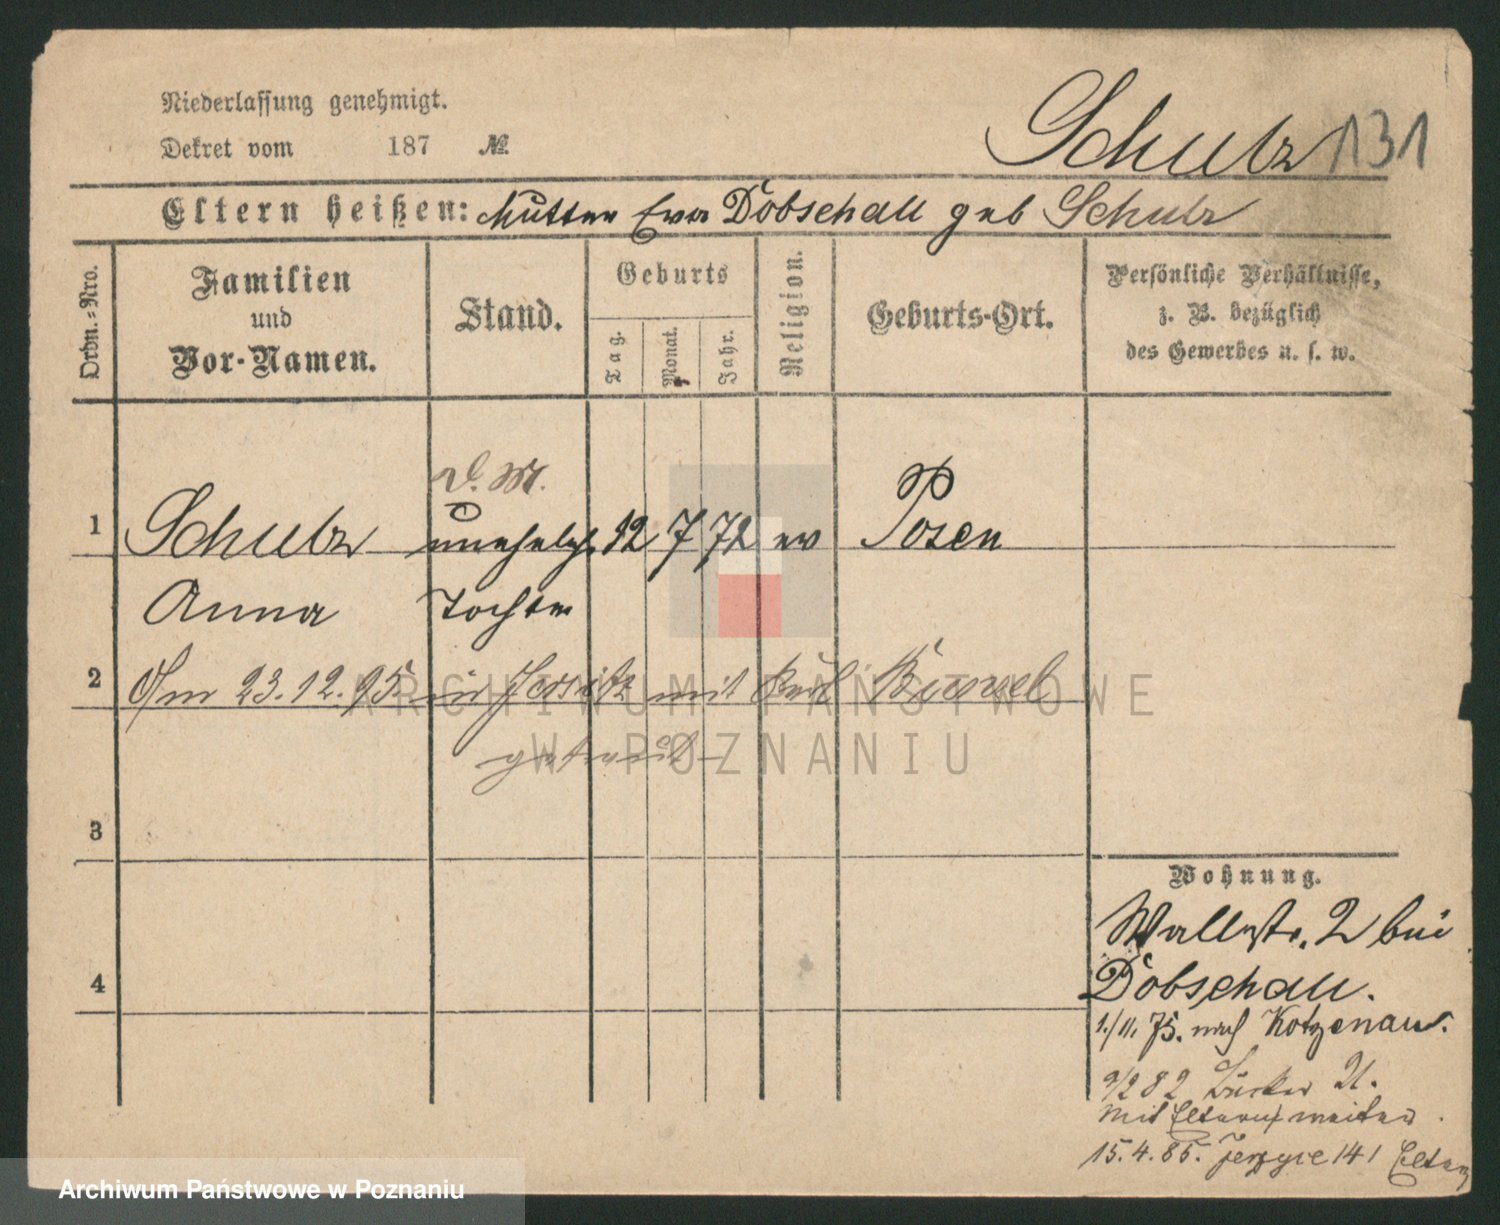 Niederlassung genehmigt.
Dekret vom 187 №
Schulz 131
Eltern heißen: Mutter Eva Dobschall geb Schulz
Ordn.-Nro.
Familien
und
Vor-Namen.
Stand.
Geburts
Tag.
Monat.
Jahr.
Religion.
Geburts-Ort.
Persönliche Verhältnisse,
z. B. bezüglich
des Gewerbes u. s. w.
D. M.
1 Schulz unehelch 12 7 72 ev Posen
Anna Tochter
2 Am 23.12.95 in Jersitz mit Karl
getraut
3
4
Wohnung.
Wallstr. 2 bei
Dobschall.
1./11. 75. nach Kotzenau.
9/2 82
mit Eltern weiter
15.4.85. 141 Eltern
ARCHIWUM PAŃSTWOWE
W POZNANIU
Archiwum Państwowe w Poznaniu